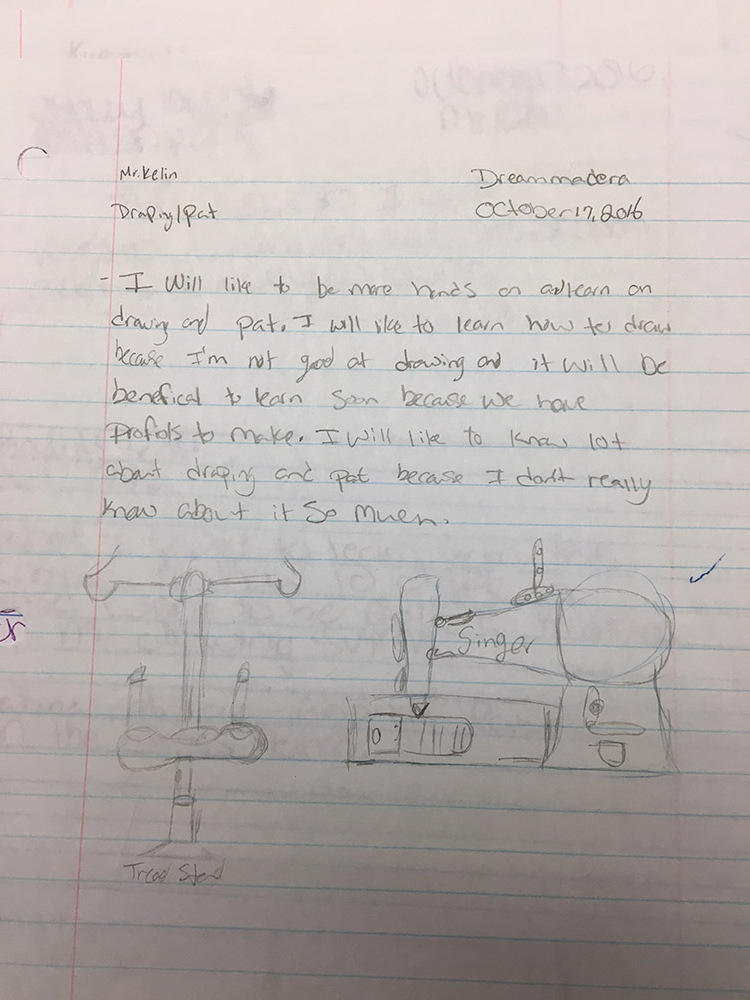 Mr. Kelin
Dreammadera
Draping/pat
October 17, 2016
- I Will like to be more hands on and learn on
drawing and pat. I will like to learn how to draw
because I'm not good at drawing and it will be
benefical to learn soon because we have
to make. I will like to know lot
about draping and pat because I don't really
know about it so much.
Singer
Stand